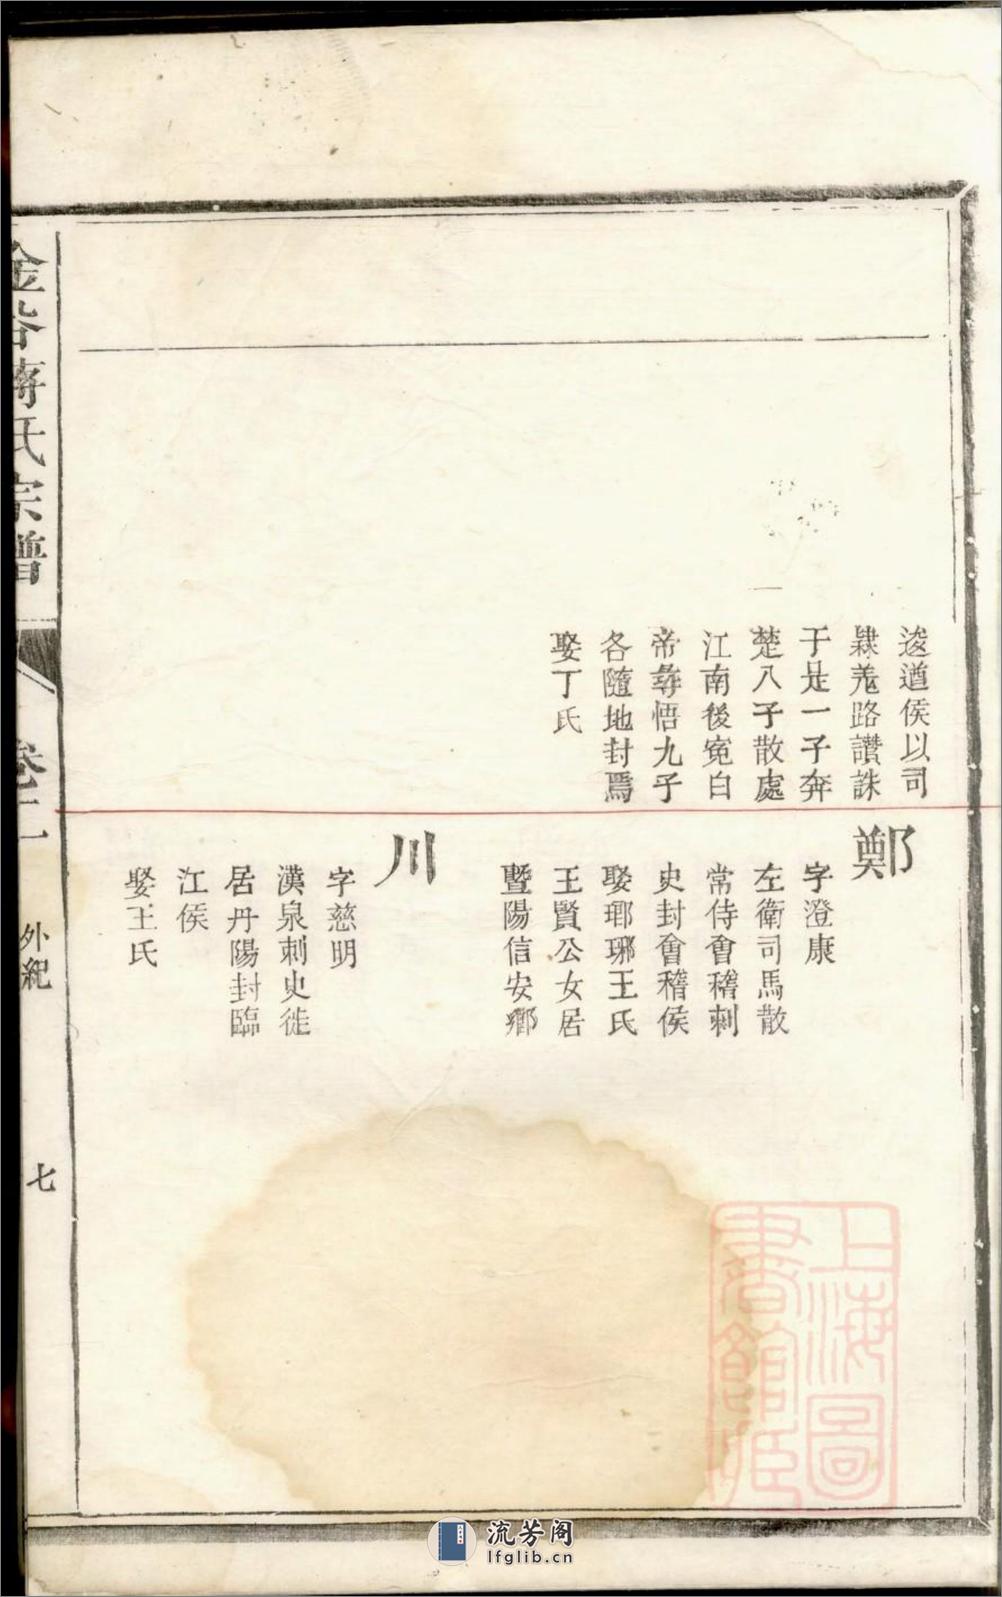 逡遒侯以司
隸羗路讚誅
于是一子奔
楚八子散處
江南後寃白
帝彜悟九子
各隨地封焉
娶丁氏
鄭
字澄康
左衛司馬散
常侍會稽刺
史封會稽侯
娶瑯琊王氏
王賢公女居
暨陽信安鄉
川
字慈明
漢泉刺史徙
居丹陽封臨
江侯
娶王氏
金谷蔣氏宗譜
卷二
外紀
七
上海圖
書館藏
流芳阁
lfglib.cn